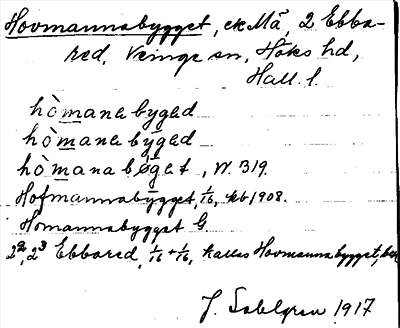 Hovmannabygget, ek Mà, 2 Ebba-
red, Veinge sn, Höks hd,
Hall. l.
hòmanabyged
hòmanabyged
hòmanabøget, W. 319.
Hofmannabygget, 1/16, kb 1908.
Homannabygget G.
2², 2³ Ebbared, 1/16 + 1/16, kallas Hovmannabygget,
J. Sahlgren 1917